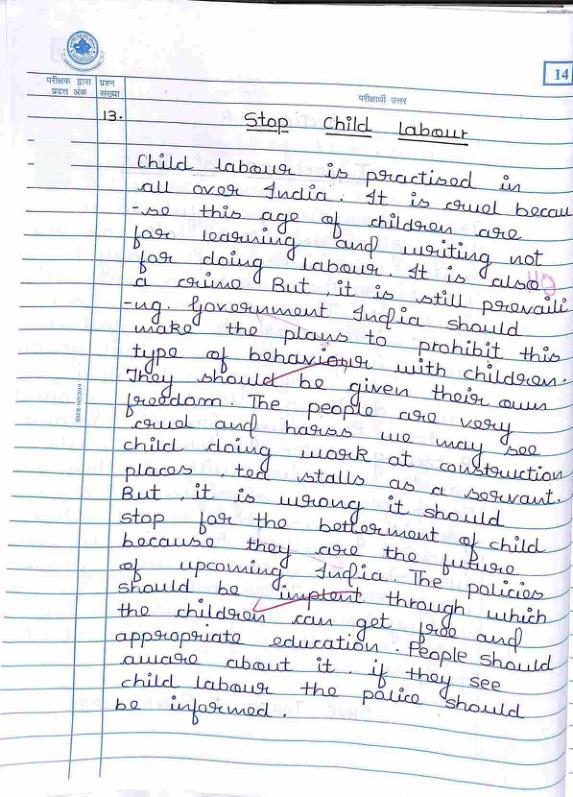 14
परीक्षक द्वारा प्रदत्त अंक
प्रश्न संख्या
परीक्षार्थी उत्तर
13.
Stop Child Labour
Child labour is practised in
all over India. It is cruel becau
-se this age of children are
for learning and writing not
for doing labour. It is also
a crime But, it is still prevaili
-ng. Government India should
make the plans to prohibit this
type of behaviour with children.
They should be given their own
freedom. The people are very
cruel and harss we may see
child doing work at construction
places, tea stalls as a servant.
But, it is wrong it should
stop for the betterment of child
because they are the future
of upcoming India. The policies
should be implent through which
the children can get free and
appropriate education. People should
aware about it. if they see
child labour the police should
be informed.